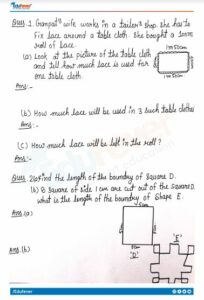 Edufever
Ques 1. Ganpat's wife works in a tailor's shop. She has to
fix lace around a table cloth. She bought a 100m
roll of lace.
(a) Look at the picture of the table cloth
and tell how much lace is used for
one table cloth.
1m 50cm
1m 50cm
Ans:-
(b) How much lace will be used in 3 such table clothes
Ans:-
(c) How much lace will be left in the roll?
Ans:-
Ques 2(a) Find the length of the boundry of Square D.
(b) 8 Square of side 1 cm are cut out of the Square D.
what is the length of the boundry of Shape E.
Ans.(a)
5cm
'E'
Ans.(b)
'D'
/Edufever